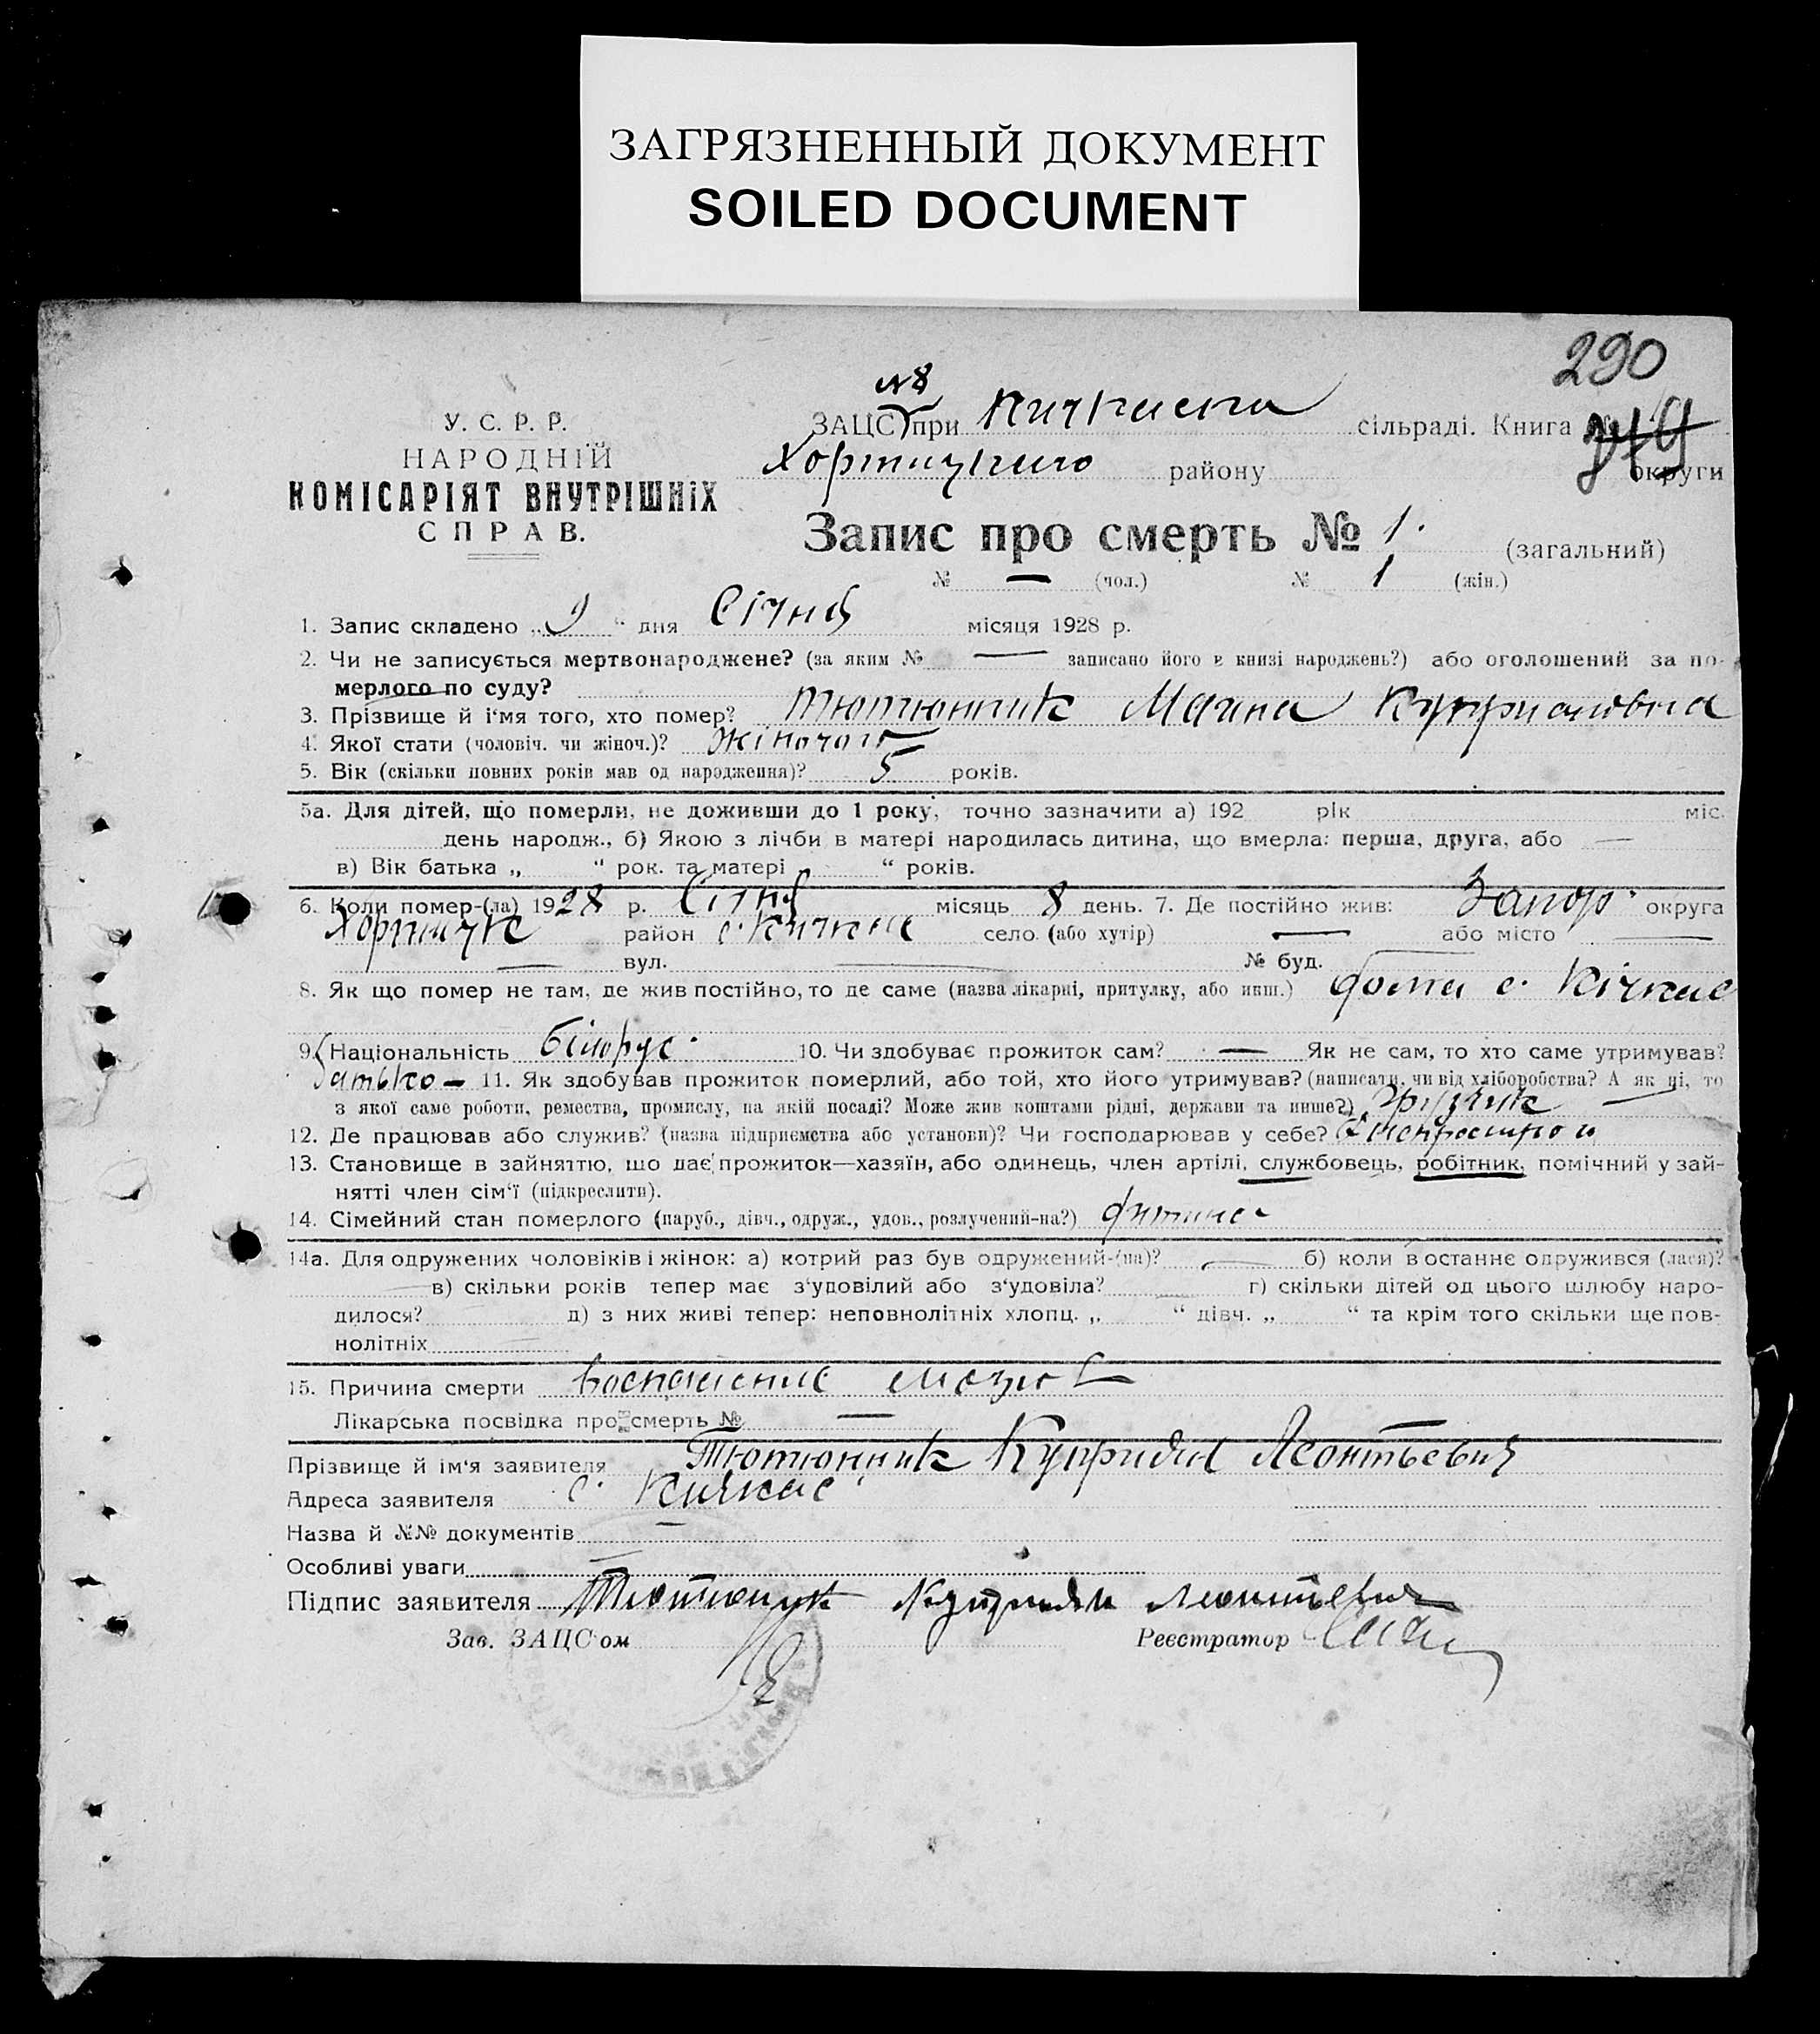 ЗАГРЯЗНЕННЫЙ ДОКУМЕНТ
SOILED DOCUMENT
290
У. С. Р. Р.
НАРОДНІЙ
КОМІСАРІЯТ ВНУТРІШНІХ
СПРАВ.
№8
ЗАЦС при Кичкаска сільраді. Книга №
Хортицького району округи
Запис про смерть № 1. (загальний)
№ — (чол.) № 1 (жін.)
1. Запис складено „ 9 “ дня Січня місяця 1928 р.
2. Чи не записується мертвонароджене? (за яким № — записано його в книзі народжень?) або оголошений за по-
мерлого по суду?
3. Прізвище й і‘мя того, хто помер? Тютюнник Куприановна
4. Якої стати (чоловіч. чи жіноч.)? жіночоі
5. Вік (скільки повних років мав од народження)? 5 років.
5а. Для дітей, що померли, не доживши до 1 року, точно зазначити а) 192 рік міс.
день народж., б) Якою з лічби в матері народилась дитина, що вмерла: перша, друга, або —
в) Вік батька „ “ рок. та матері “ років.
6. Коли помер-(ла) 1928 р. Січня місяць 8 день. 7. Де постійно жив: Запор. округа
Хортицьк район с. Кичкас село (або хутір) — або місто —
— вул. — № буд.
8. Як що помер не там, де жив постійно, то де саме (назва лікарні, притулку, або инш.) дома с. Кічкас
9. Національність білорус. 10. Чи здобуває прожиток сам? — Як не сам, то хто саме утримував?
батько — 11. Як здобував прожиток померлий, або той, хто його утримував? (написати, чи від хліборобства? А як ні, то
з якої саме роботи, ремества, промислу, на якій посаді? Може жив коштами рідні, держави та инше?) Грузчик —
12. Де працював або служив? (назва підприємства або установи)? Чи господарював у себе? Днепрострой
13. Становище в зайняттю, що дає прожиток—хазяїн, або одинець, член артілі, службовець, робітник, помічний у зай-
нятті член сім‘ї (підкреслити).
14. Сімейний стан померлого (паруб., дівч., одруж., удов., розлучений-на?) дитина
14а. Для одружених чоловіків і жінок: а) котрий раз був одружений-(на)? — б) коли в останнє одружився (лася)?
— в) скільки років тепер має з‘удовілий або з‘удовіла? — г) скільки дітей од цього шлюбу наро-
дилося? д) з них живі тепер: неповнолітніх хлопц. „ “ дівч. „ “ та крім того скільки ще пов-
нолітніх
15. Причина смерти воспаление мозгов
Лікарська посвідка про смерть № —
Прізвище й ім‘я заявителя Тютюнник Куприян Леонтьевич
Адреса заявителя с. Кичкас
Назва й №№ документів —
Особливі уваги
Підпис заявителя Тютюнук Куприян Леонтьевич
Зав. ЗАЦС‘ом Реєстратор